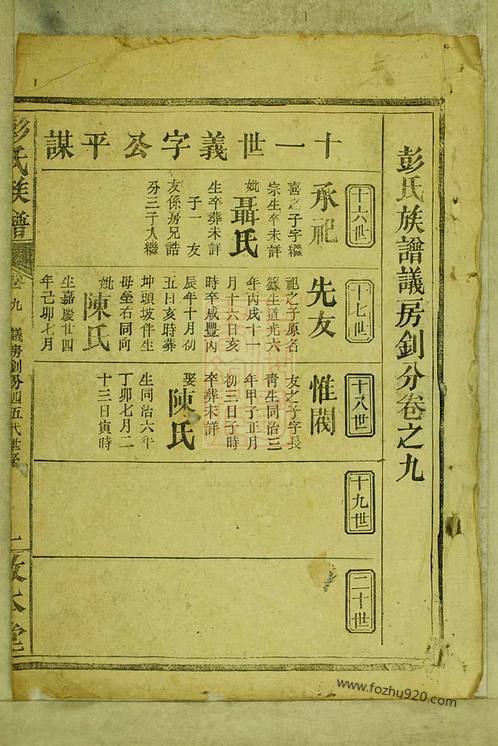 彭氏族譜議房釗分卷之九
十一世義字公平謀
十六世
承祀
喜之子字繼
宗生卒未詳
妣聶氏
生卒葬未詳
子一 友
友係房兄誥
分三子入繼
十七世
先友
祀之子原名
蘇生道光六
年丙戌十一
月十六日亥
時卒咸豐丙
辰年十月初
五日亥時葬
坤頭坡伴生
母塋右同向
妣陳氏
生嘉慶廿四
年己卯七月
十八世
惟閣
友之子字長
青生同治三
年甲子正月
初三日子時
卒葬未詳
娶陳氏
生同治六年
丁卯七月二
十三日寅時
十九世
二十世
彭氏族譜
卷九 議房釗分四五代世系
一敦本堂
www.fozhu920.com